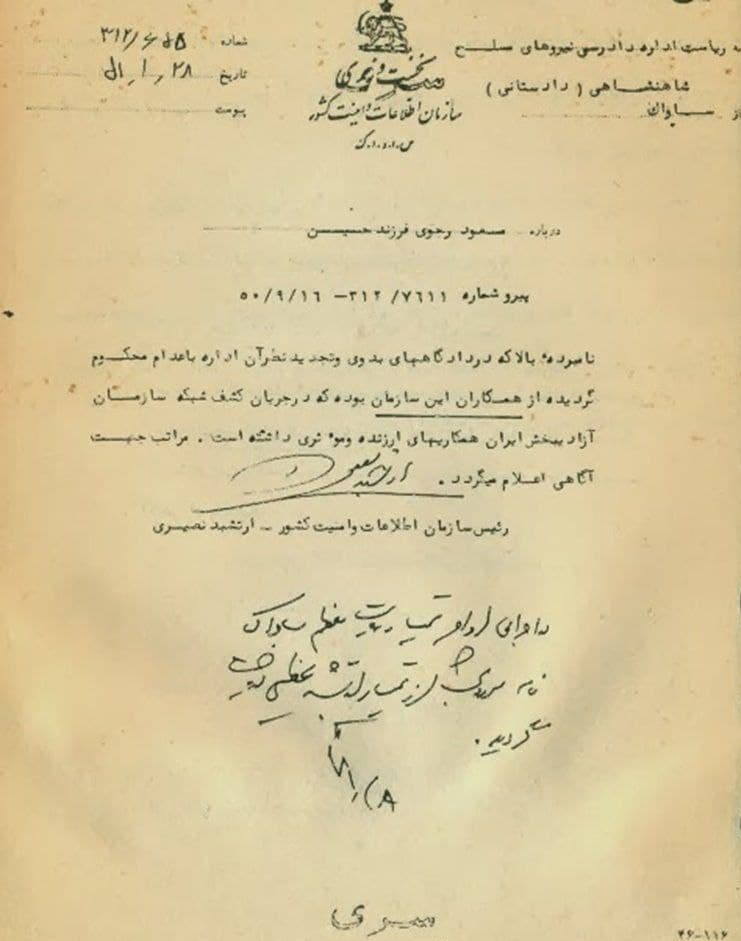 به ریاست اداره دادرسی نیروهای مسلح
شاهنشاهی (دادستانی)
از ساواک
نخست وزیری
سازمان اطلاعات و امنیت کشور
س.ا.و.ا.ک
شماره ۳۱۲/
تاریخ ۲۸/۱/۵۱
پیوست
سری
درباره مسعود رجوی فرزند حسین
پیرو شماره ۳۱۲/۷۶۱۱ – ۵۰/۹/۱۶
نامبرده بالا که در دادگاههای بدوی و تجدید نظر آن اداره باعدام محکوم
گردیده از همکاران این سازمان بوده که در جریان کشف شبکه سازمان
آزادیبخش ایران همکاریهای ارزنده و موثری داشته است . مراتب جهت
آگاهی اعلام میگردد .
رئیس سازمان اطلاعات و امنیت کشور – ارتشبد نصیری
اوامر تیمسار ریاست معظم ساواک
نامه
گردید .
سری
۴۶–۱۱۶